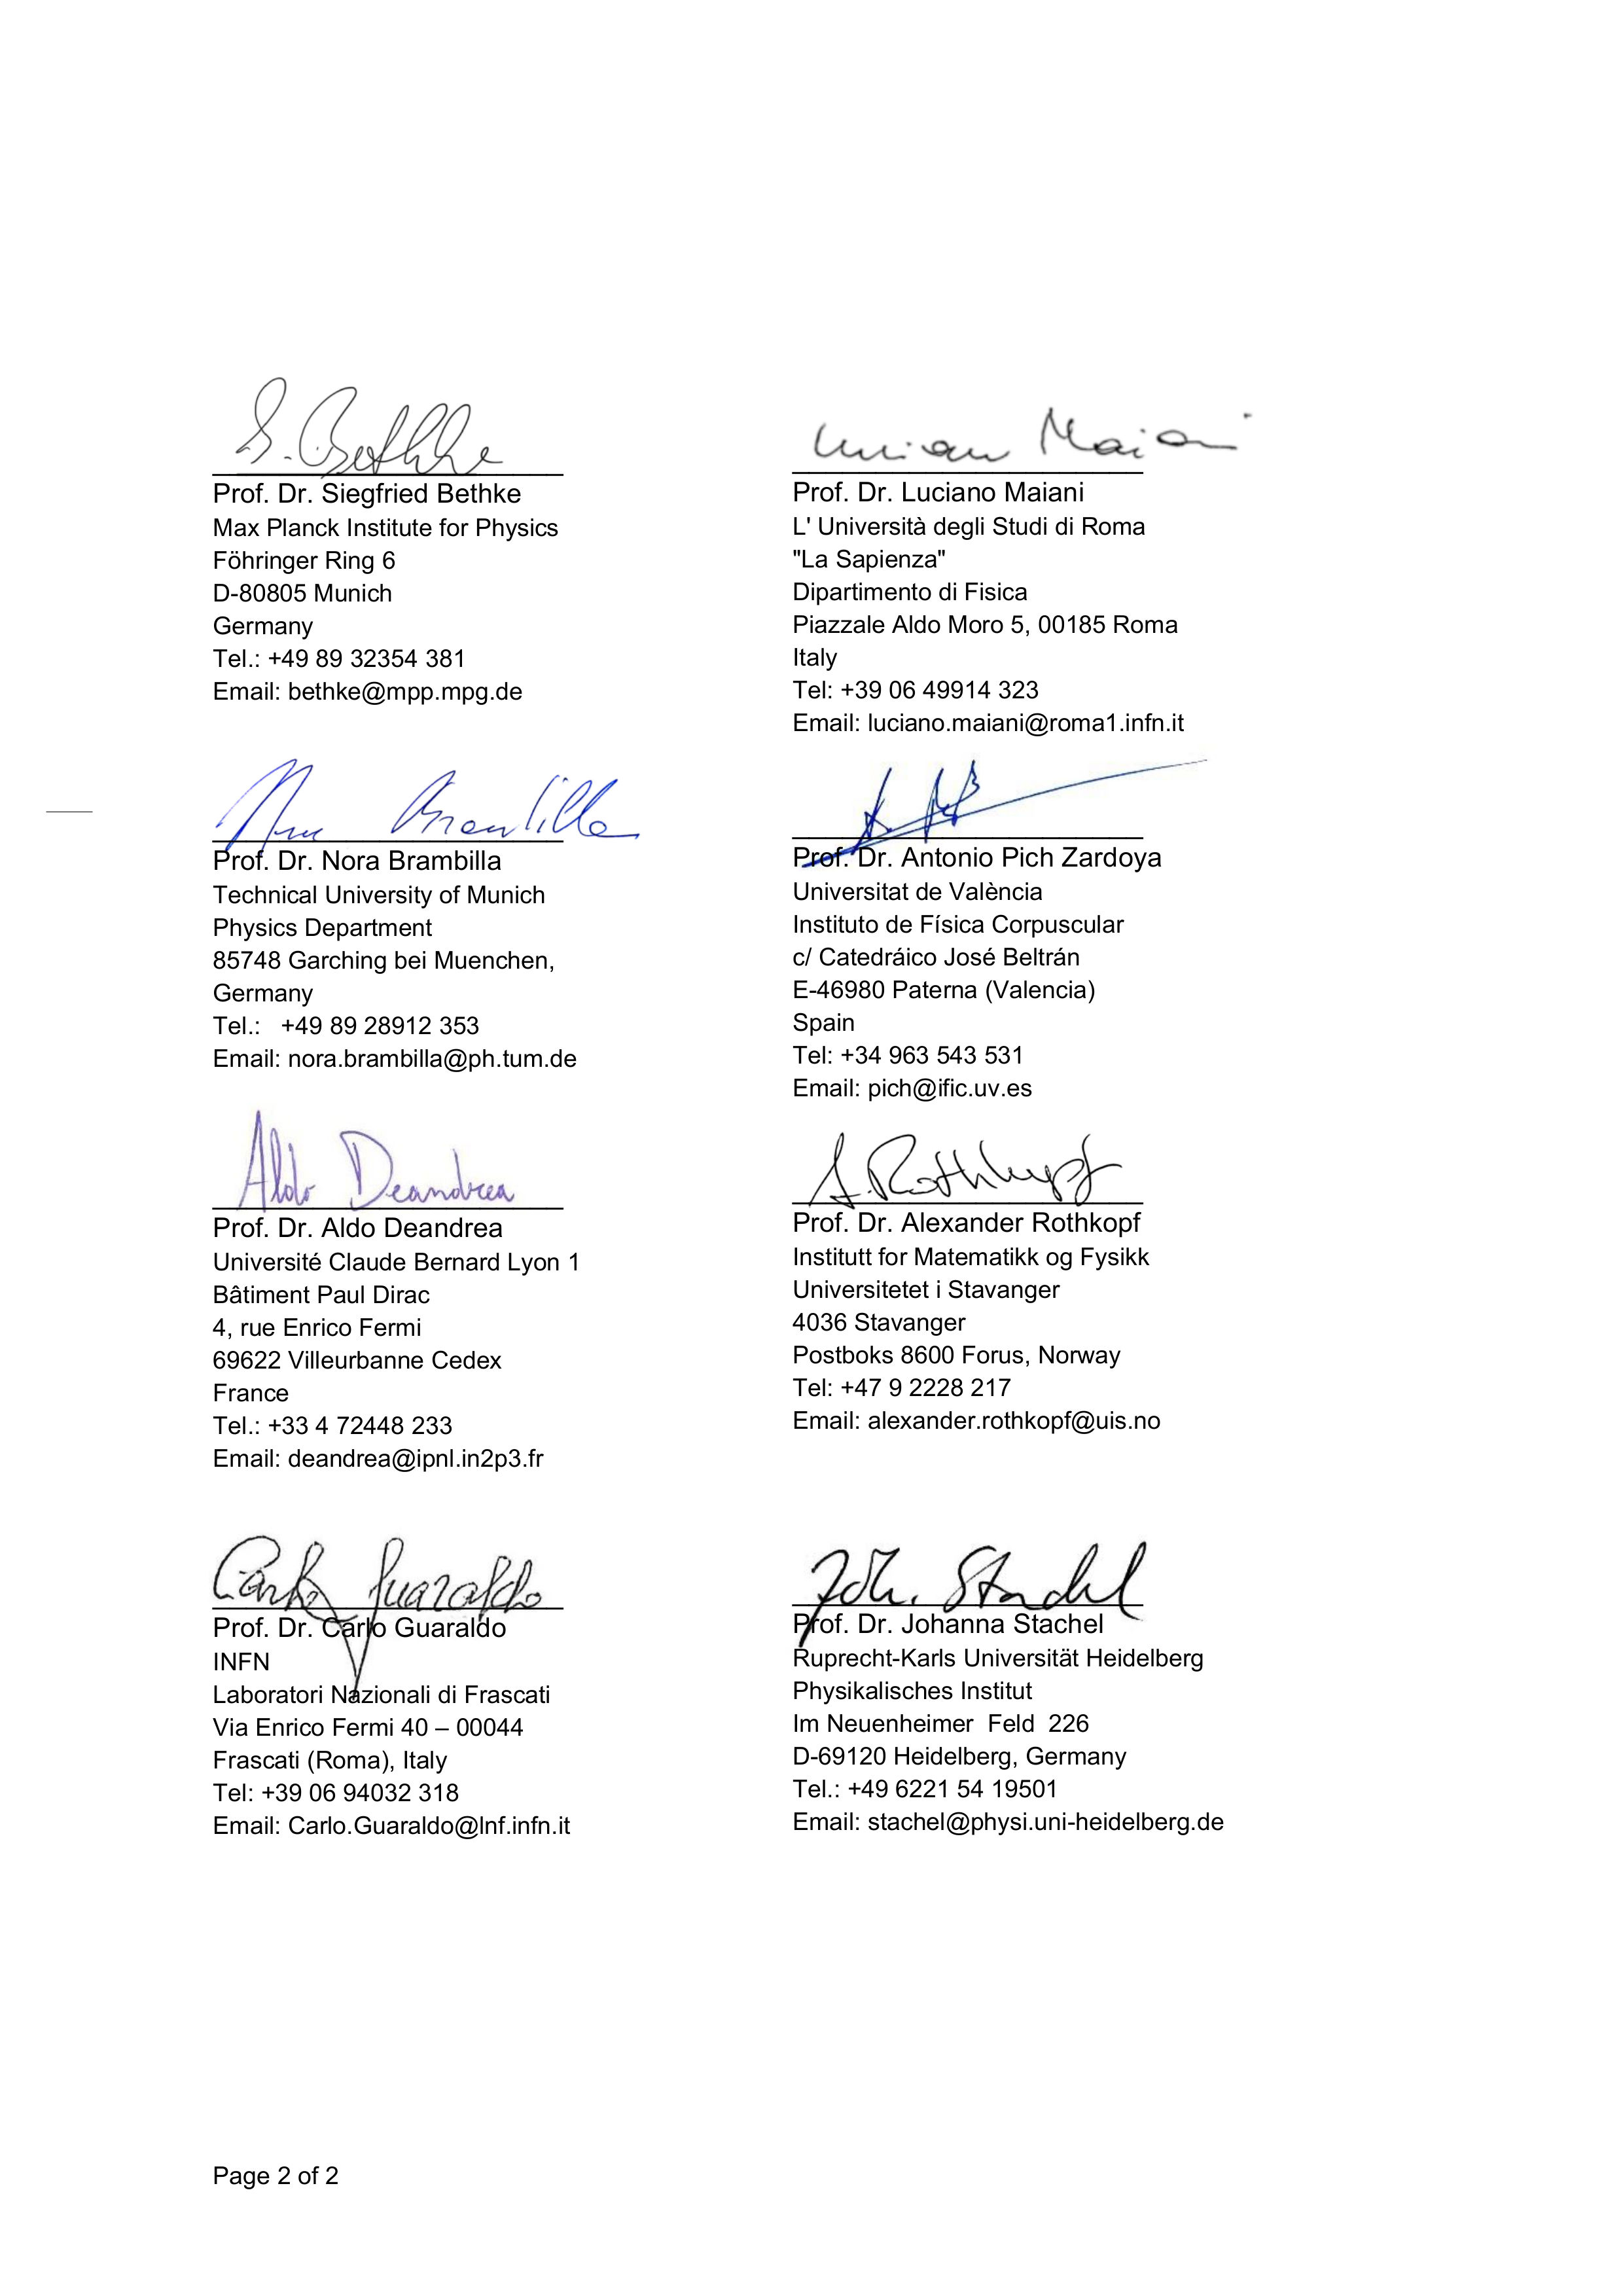 S. Bethke
Prof. Dr. Siegfried Bethke
Max Planck Institute for Physics
Föhringer Ring 6
D-80805 Munich
Germany
Tel.: +49 89 32354 381
Email: bethke@mpp.mpg.de
Nora Brambilla
Prof. Dr. Nora Brambilla
Technical University of Munich
Physics Department
85748 Garching bei Muenchen,
Germany
Tel.: +49 89 28912 353
Email: nora.brambilla@ph.tum.de
Aldo Deandrea
Prof. Dr. Aldo Deandrea
Université Claude Bernard Lyon 1
Bâtiment Paul Dirac
4, rue Enrico Fermi
69622 Villeurbanne Cedex
France
Tel.: +33 4 72448 233
Email: deandrea@ipnl.in2p3.fr
Carlo Guaraldo
Prof. Dr. Carlo Guaraldo
INFN
Laboratori Nazionali di Frascati
Via Enrico Fermi 40 – 00044
Frascati (Roma), Italy
Tel: +39 06 94032 318
Email: Carlo.Guaraldo@lnf.infn.it
Luciano Maiani
Prof. Dr. Luciano Maiani
L' Università degli Studi di Roma
"La Sapienza"
Dipartimento di Fisica
Piazzale Aldo Moro 5, 00185 Roma
Italy
Tel: +39 06 49914 323
Email: luciano.maiani@roma1.infn.it
Prof. Dr. Antonio Pich Zardoya
Universitat de València
Instituto de Física Corpuscular
c/ Catedráico José Beltrán
E-46980 Paterna (Valencia)
Spain
Tel: +34 963 543 531
Email: pich@ific.uv.es
A. Rothkopf
Prof. Dr. Alexander Rothkopf
Institutt for Matematikk og Fysikk
Universitetet i Stavanger
4036 Stavanger
Postboks 8600 Forus, Norway
Tel: +47 9 2228 217
Email: alexander.rothkopf@uis.no
Joh. Stachel
Prof. Dr. Johanna Stachel
Ruprecht-Karls Universität Heidelberg
Physikalisches Institut
Im Neuenheimer Feld 226
D-69120 Heidelberg, Germany
Tel.: +49 6221 54 19501
Email: stachel@physi.uni-heidelberg.de
Page 2 of 2